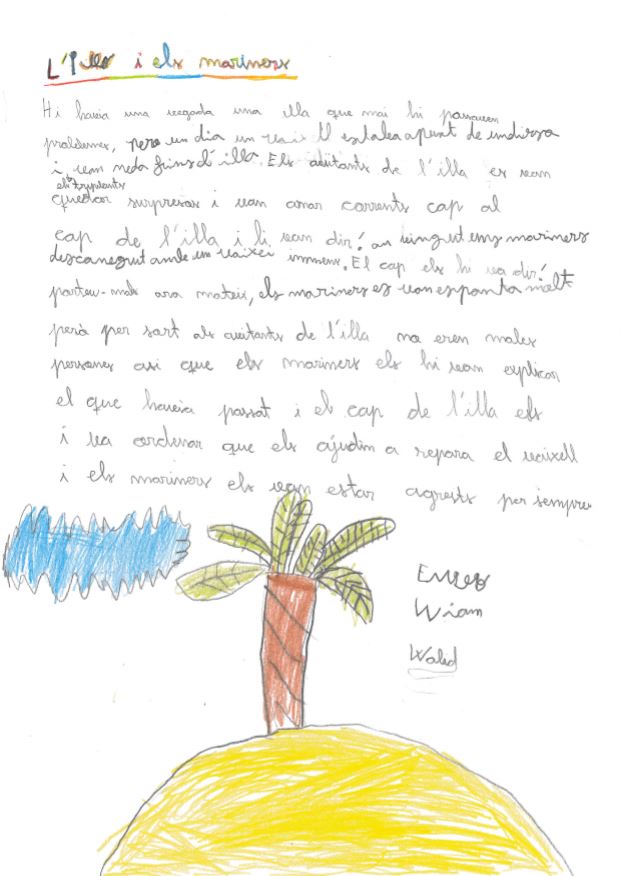 L'illa i els mariners
Hi havia una vegada una illa que mai hi passaven
problemes, pero un dia un vaixell estava apunt de undirsa
i van neda fins d'illa. Els avitants de l'illa es van
els tripulants
quedar surpresos i van anar corrents cap al
cap de l'illa i li van dir! an vingut uns mariners
desconegut amb un vaixei immens. El cap els hi va dir!
parteu-nos ara mateix, els mariners es van espanta molt
però per sort als avitants de l'illa no eren males
persones axi que els mariners els hi van explicar
el que havia passat i el cap de l'illa els
i va ordenar que els ajudim a repara el vaixell
i els mariners els van estar agraits per sempre
Wiam
Walid